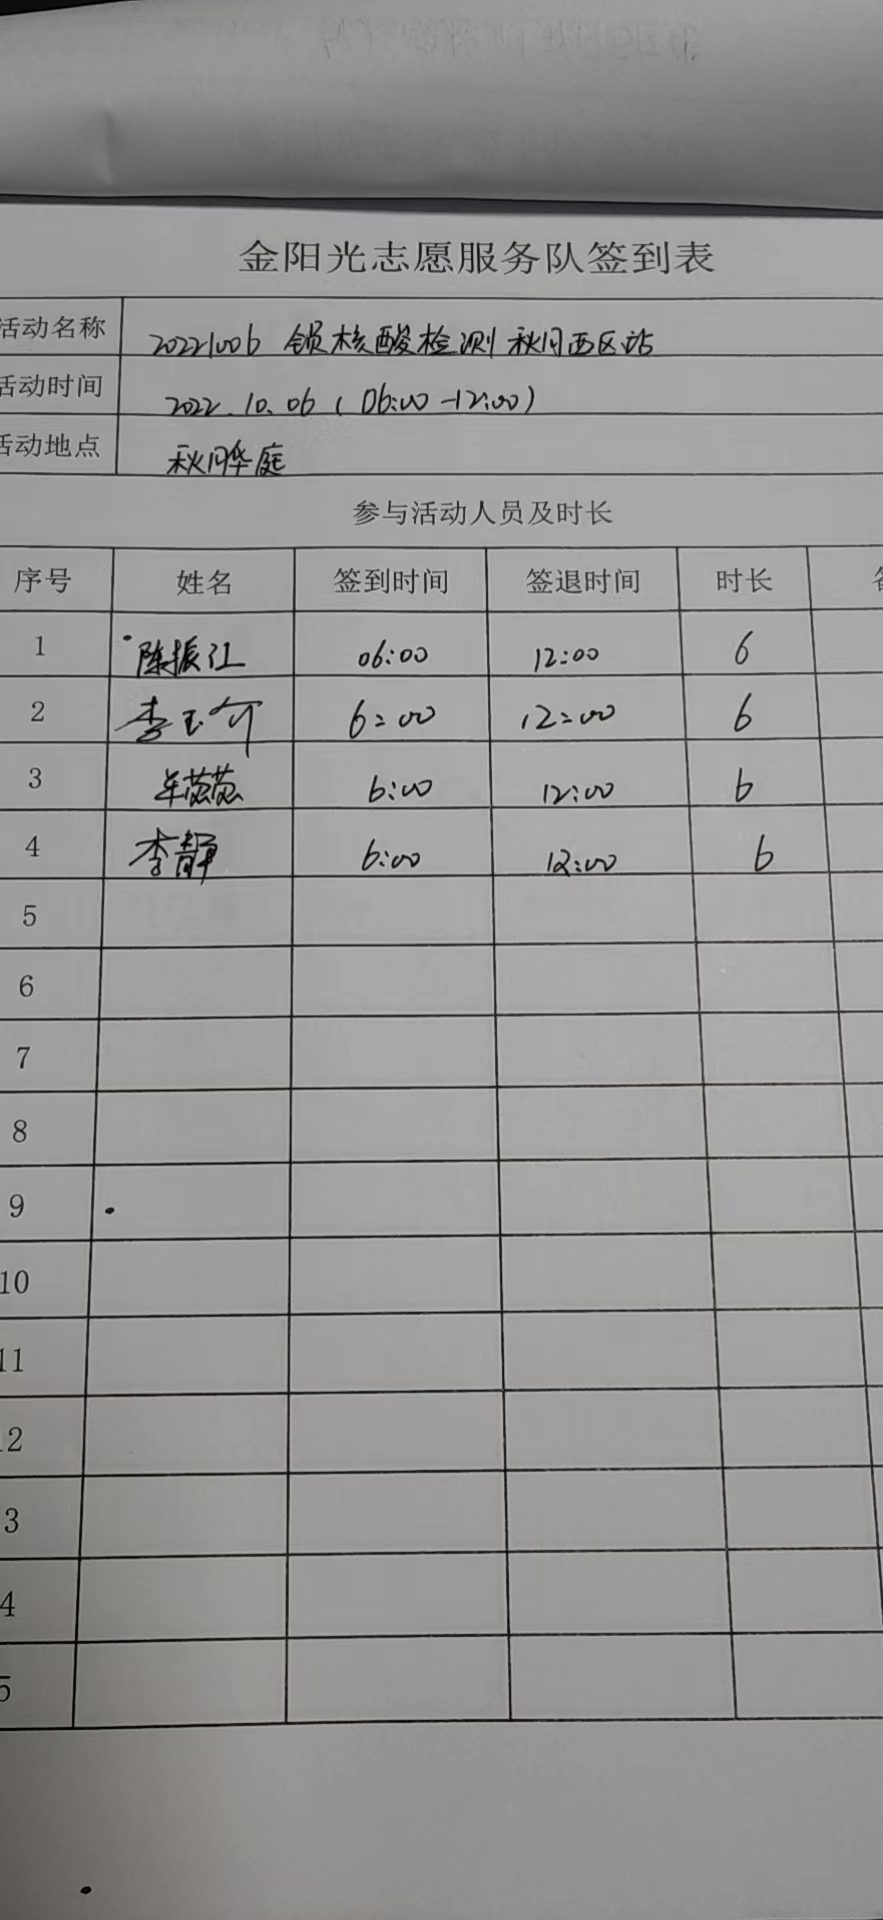 金阳光志愿服务队签到表
活动名称 20221006 镇核酸检测 秋月西区站
活动时间 2022.10.06 (06:00-12:00)
活动地点 秋月华庭
参与活动人员及时长
序号 姓名 签到时间 签退时间 时长
1 陈振江 06:00 12:00 6
2 李玉 6:00 12:00 6
3 6:00 12:00 6
4 李静 6:00 12:00 6
5
6
7
8
9
10
11
12
13
14
15